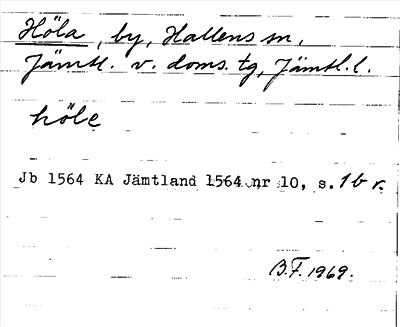 Höla, by, Hallens sn,
Jämtl. v. doms. tg, Jämtl. l.
höle
Jb 1564 KA Jämtland 1564 nr 10, s. 1b r.
B.F. 1969.